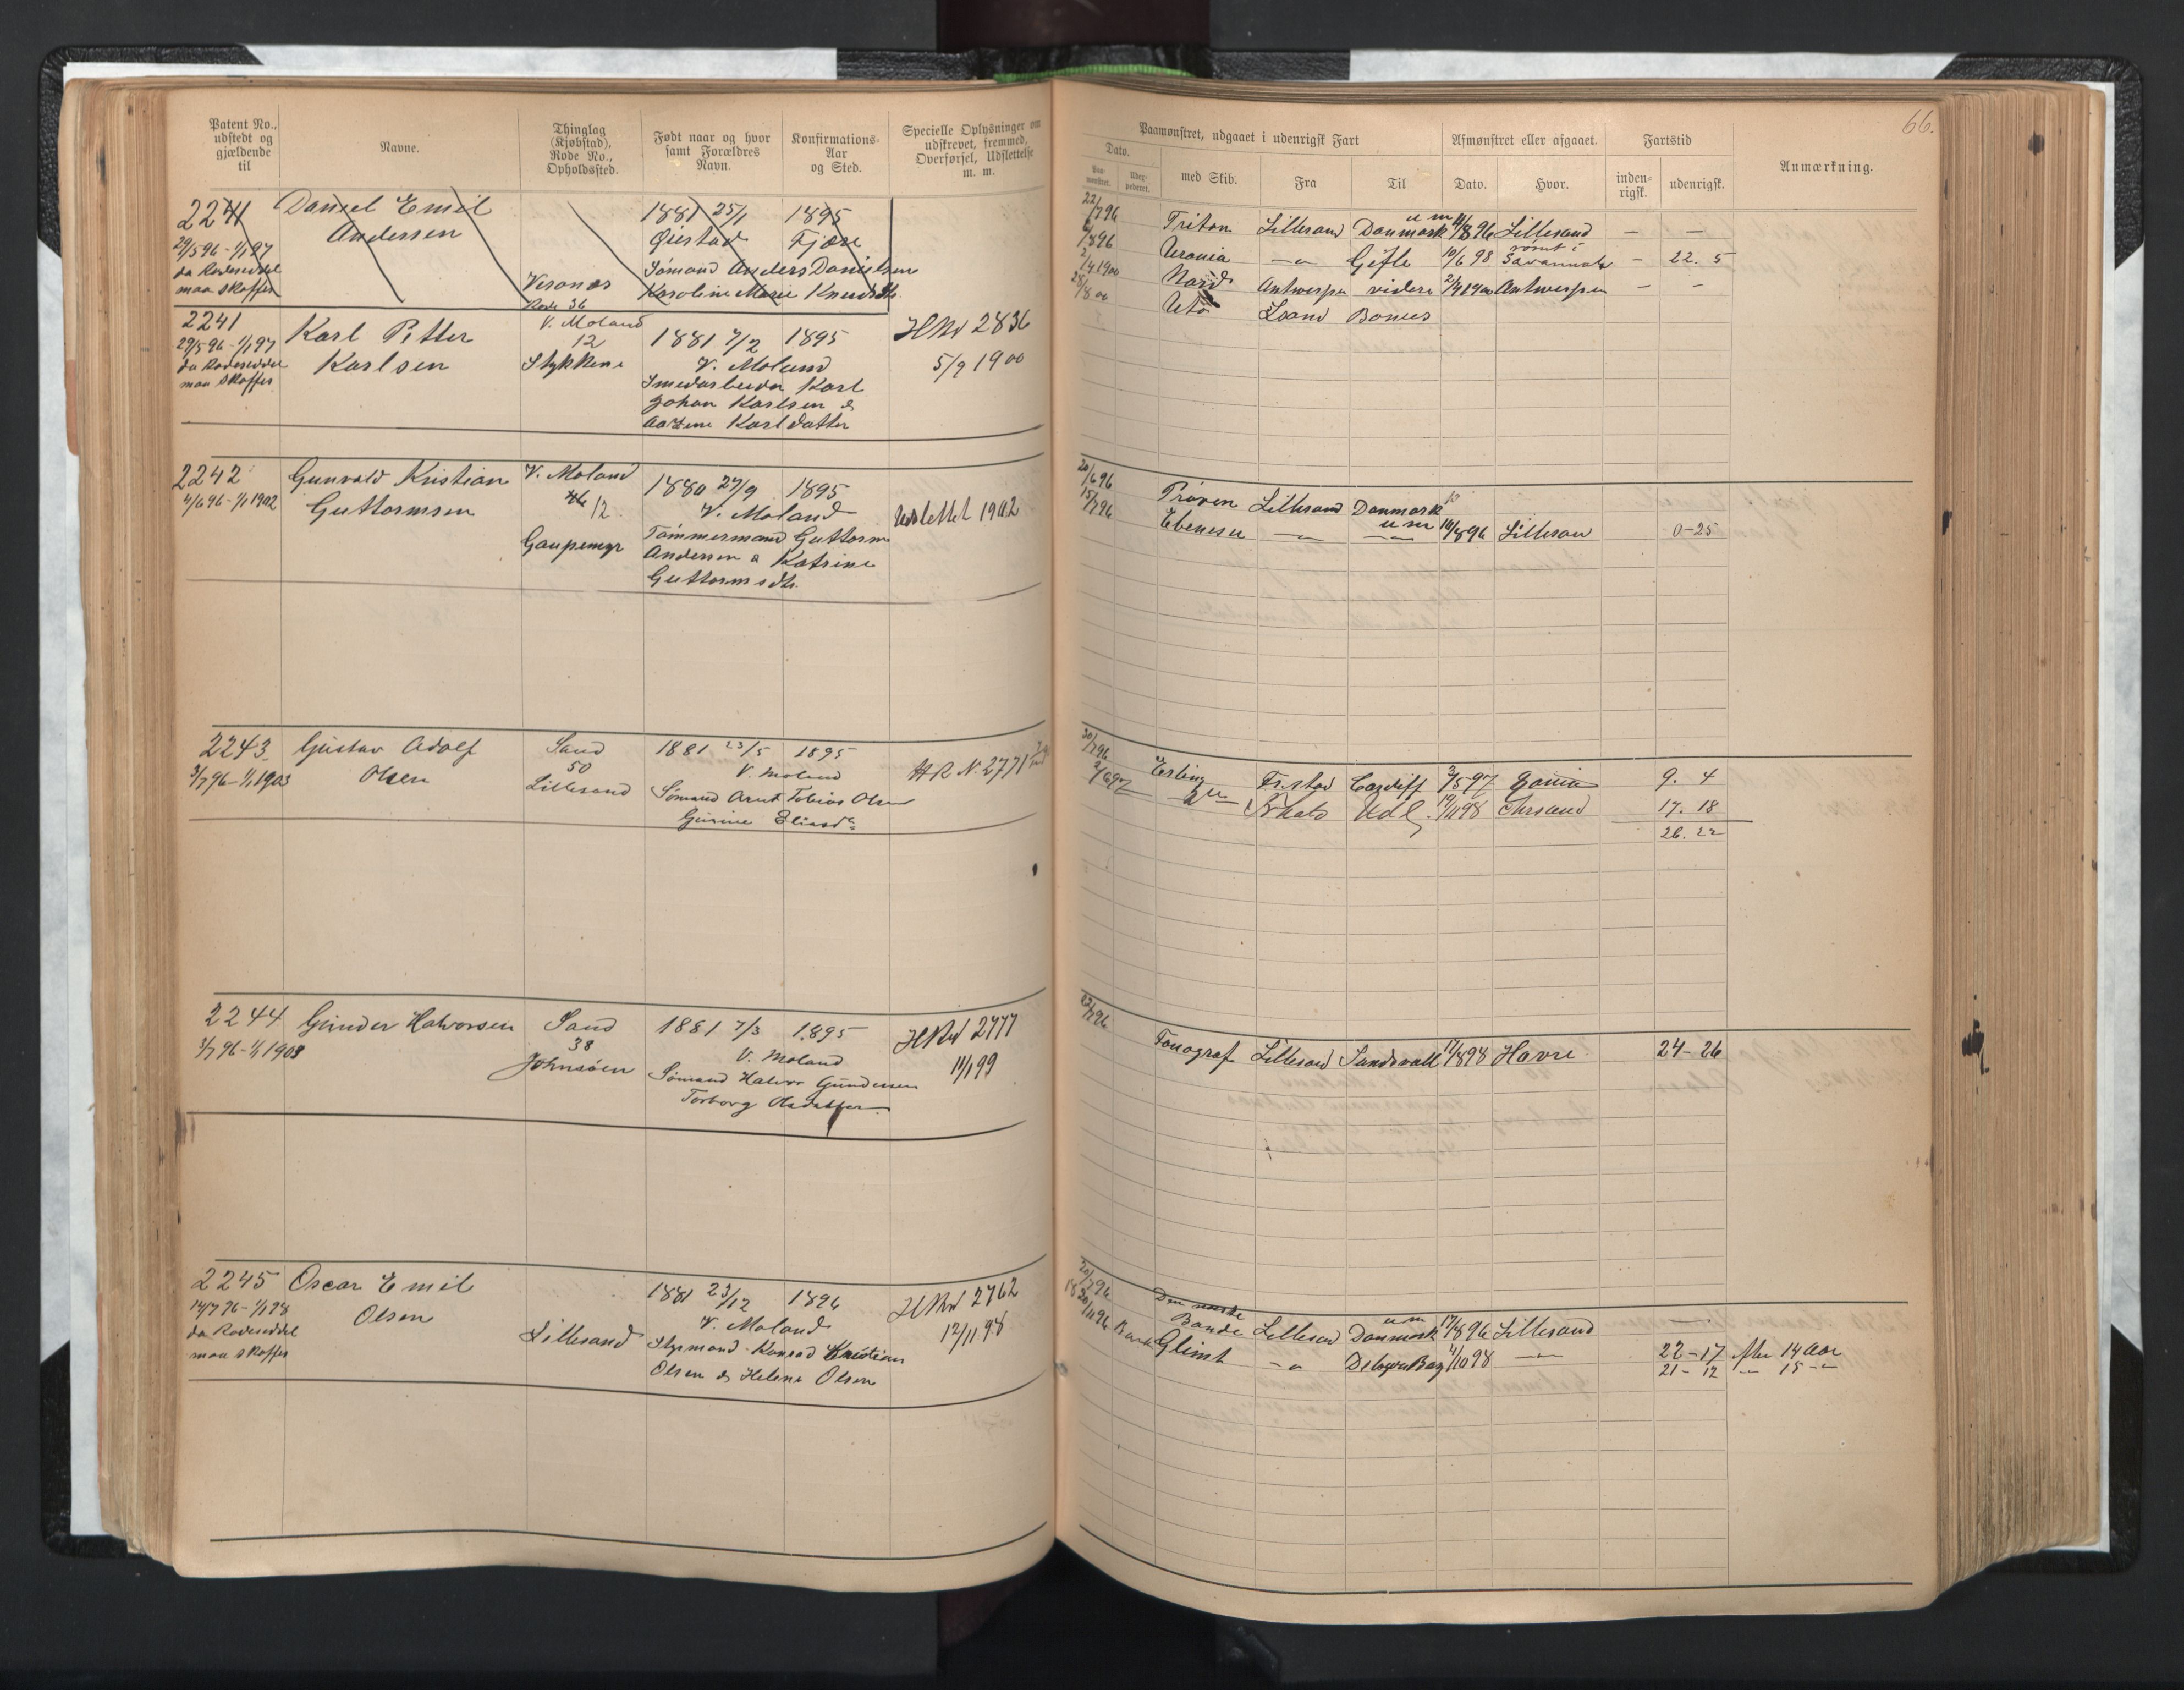 Patent No., udstedt og gjældende til
Navne.
Thinglag (Kjøbstad), Rode No., Opholdssted.
Født naar og hvor samt Forældres Navn.
Konfirmations-Aar og Sted.
Specielle Oplysninger om udskrevet, fremmed, Overførsel, Udslettelse m. m.
2241
29/5 96 - 1/1 97
da Rodeseddel
maa skaffes
Daniel Emil
Andersen
Vesonas
Rode 36
1881 25/1
Øiestad
1895
Fjære
Sømand Anders Danielsen
Karoline Marie Knudsdtr.
2241
29/5 96 - 1/1 97
da Rodeseddel
maa skaffes
Karl Petter
Karlsen
V. Moland
12
Stykkene
1881 7/2 1895
V. Moland
Smedarbeider Karl
Johan Karlsen &
Karldatter
HRul 2836
5/9 1900
2242
4/6 96 - 1/1 1902
Gunvald Kristian
Guttormsen
V. Moland
12
Gaupemyr
1880 27/9 1895
V. Moland
Tømmermand Guttorm
Andersen & Katrine
Guttormsdtr.
Udslettet 1902
2243
3/7 96 - 1/1 1903
Gustav Adolf
Olsen
Sand
50
Lillesand
1881 23/5 1895
V. Moland
Sømand Arnt Tobias Olsen
Gurine Eliasdtr
HR N. 2771
2244
3/7 96 - 1/1 1903
Gunder Halvorsen
Sand
38
Johnsøen
1881 7/3 1895
V. Moland
Sømand Halvor Gundersen
Torborg Olsdatter
HRul 2777
11/1 99
2245
14/7 96 - 1/1 98
da Rodeseddel
maa skaffes
Oscar Emil
Olsen
Lillesand
1881 23/12 1896
V. Moland
Styrmand Konrad Kristian
Olsen & Helene Olsen
HRul 2762
12/11 98
66.
Paamønstret, udgaaet i udenrigsk Fart
Afmønstret eller afgaaet.
Fartstid
Anmærkning.
Dato.
Paa-mønstret.
Udex-pederet.
med Skib.
Fra
Til
Dato.
Hvor.
inden-rigsk.
udenrigsk.
22/7 96 Triton Lillesand Danmark u m 11/8 96 Lillesand — —
1896 Urania —"— Gefle 10/6 98 rømt i Savannah — 22. 5
2/4 1900 Nord Antwerpen videre 2/4 1900 Antwerpen — —
28/8 00 Utø Lsand Bonus
20/6 96 Prøven Lillesand Danmark
15/7 96 Ebeneser —"— u m 14/8 96 Lillesan 0-25
30/7 96 Erling Fr.stad Cardiff 3/5 97 9. 4
2/6 97 Udl. 19/11 98 Chrsand 17. 18
26. 22
22/7 96
Fonograf Lillesand Sundsvall 17/8 98 Havre 24-26
20/7 96 Den norske
Bonde Lillesand Danmark u m 17/8 96 Lillesand —
20/11 96 Bark Glimt —"— Delaware Bay 4/10 98 —"— 22-17 efter 14 Aar
21-12 —"— 15 —"—